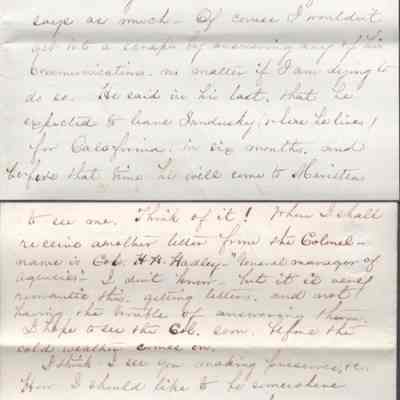 says as much - Of course I wouldn't
get into a scrape by answering any of his
communications. no matter if I am dying to
do so. He said in his last, that he
expected to leave Sandusky, (where he lives)
for California, in six months. and
before that time he will come to Marietta
to see me. Think of it! When I shall
receive another letter from the Colonel -
name is Col. H. H. Hadley - "General manager of
agencies" - I don't know - but it is very
romantic this. getting letters. and not
having the trouble of answering them.
I hope to see the Col. soon. before the
cold weather comes on.
I think I see you making preserves, &c.
How I should like to be somewhere